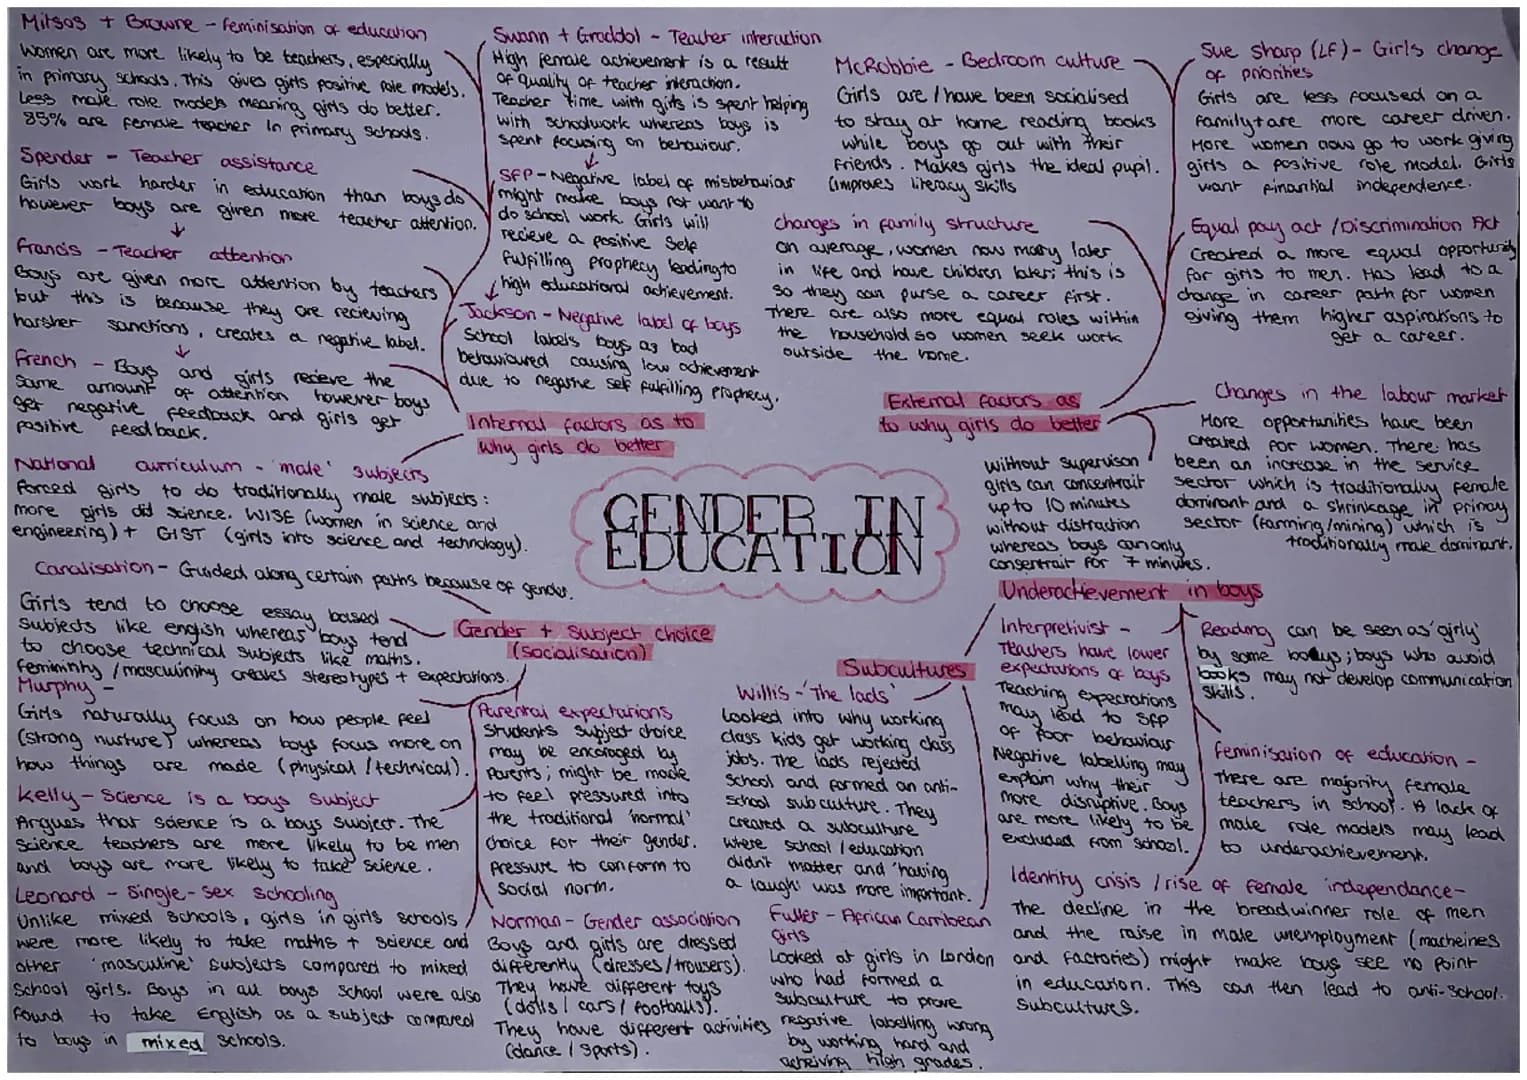 Mitsos + Browne - feminisation of education
Women are more likely to be teachers, especially
in primary schools. This gives girls positive role models.
Less male role models meaning girls do better.
85% are female teacher in primary schools.
Spender - Teacher assistance
Girls work harder in education than boys do
however boys are given more teacher attention.
↓
Francis - Teacher attention
Boys are given more attention by teachers
but this is because they are recieving
harsher sanctions, creates a negative label.
↓
French - Boys and girls recieve the
same amount of attention however boys
get negative feedback and girls get
positive feedback.
Swann + Graddol - Teacher interaction
High female achievement is a result
of quality of teacher interaction.
Teacher time with girls is spent helping
with schoolwork whereas boys is
spent focusing on behaviour.
↓
SFP - Negative label of misbehaviour
might make boys not want to
do school work. Girls will
recieve a positive self
fulfilling prophecy leading to
high educational achievement.
↓
Jackson - Negative label of boys
School labels boys as bad
behavioured causing low achievement
due to negative self fulfilling prophecy.
Internal factors as to
why girls do better
National curriculum - 'male' subjects
Forced girls to do traditionally male subjects:
more girls did science. WISE (women in science and
engineering) + GIST (girls into science and technology).
McRobbie - Bedroom culture
Girls are / have been socialised
to stay at home reading books
while boys go out with their
friends. Makes girls the ideal pupil.
(improves literacy skills
Changes in family structure
On average, women now marry later
in life and have children later; this is
so they can purse a career first.
There are also more equal roles within
the household so women seek work
outside the home.
Sue Sharp (LF) - Girls change
of priorities
Girls are less focused on a
family + are more career driven.
More women now go to work giving
girls a positive role model. Girls
want finantial independence.
Equal pay act / Discrimination Act
Created a more equal opportunity
for girls to men. Has lead to a
change in career path for women
giving them higher aspirations to
get a career.
External factors as
to why girls do better
Changes in the labour market
More opportunities have been
created for women. There has
been an increase in the service
sector which is traditionally female
dominant and a shrinkage in primary
sector (farming/mining) which is
traditionally male dominant.
without supervison
girls can concentrait
up to 10 minutes
without distraction
whereas boys can only
consentrait for 7 minutes.
GENDER IN
EDUCATION
Canalisation - Guided along certain paths because of gender.
Girls tend to choose essay based
subjects like english whereas boys tend
to choose technical subjects like maths.
femininity / masculinity creates stereotypes + expectations.
Gender + subject choice
(socialisation)
Murphy -
Girls naturally focus on how people feel
(strong nurture) whereas boys focus more on
how things are made (physical / technical).
Kelly - Science is a boys subject
Argues that science is a boys subject. The
science teachers are more likely to be men
and boys are more likely to take science.
Leonard - Single-sex schooling
Unlike mixed schools, girls in girls schools
were more likely to take maths + science and
other 'masculine' subjects compared to mixed
school girls. Boys in all boys school were also
found to take English as a subject compared
to boys in mixed schools.
Parental expectations
Students subject choice
may be encoraged by
parents; might be made
to feel pressured into
the traditional 'normal'
choice for their gender.
Pressure to conform to
social norm.
Norman - Gender association
Boys and girls are dressed
differently (dresses/trousers).
They have different toys
(dolls / cars / footballs).
They have different activities
(dance / sports).
Subcultures
Willis - 'The lads'
Looked into why working
class kids get working class
jobs. The lads rejected
school and formed an anti-
school subculture. They
created a subculture
where school / education
didn't matter and 'having
a laugh' was more important.
Fuller - African Carribean
girls
Looked at girls in London
who had formed a
subculture to prove
negative labelling wrong
by working hard and
achieving high grades.
Underachievement in boys
Interpretivist -
Teachers have lower
expectations of boys
Teaching expectations
may lead to SFP
of poor behaviour
Negative labelling may
explain why their
more disruptive. Boys
are more likely to be
excluded from school.
Reading can be seen as 'girly'
by some boys; boys who avoid
books may not develop communication
skills.
Feminisation of education -
There are majority female
teachers in school. A lack of
male role models may lead
to underachievement.
Identity crisis / rise of female independance -
The decline in the breadwinner role of men
and the raise in male unemployment (macheines
and factories) might make boys see no point
in education. This can then lead to anti-school
subcultures.